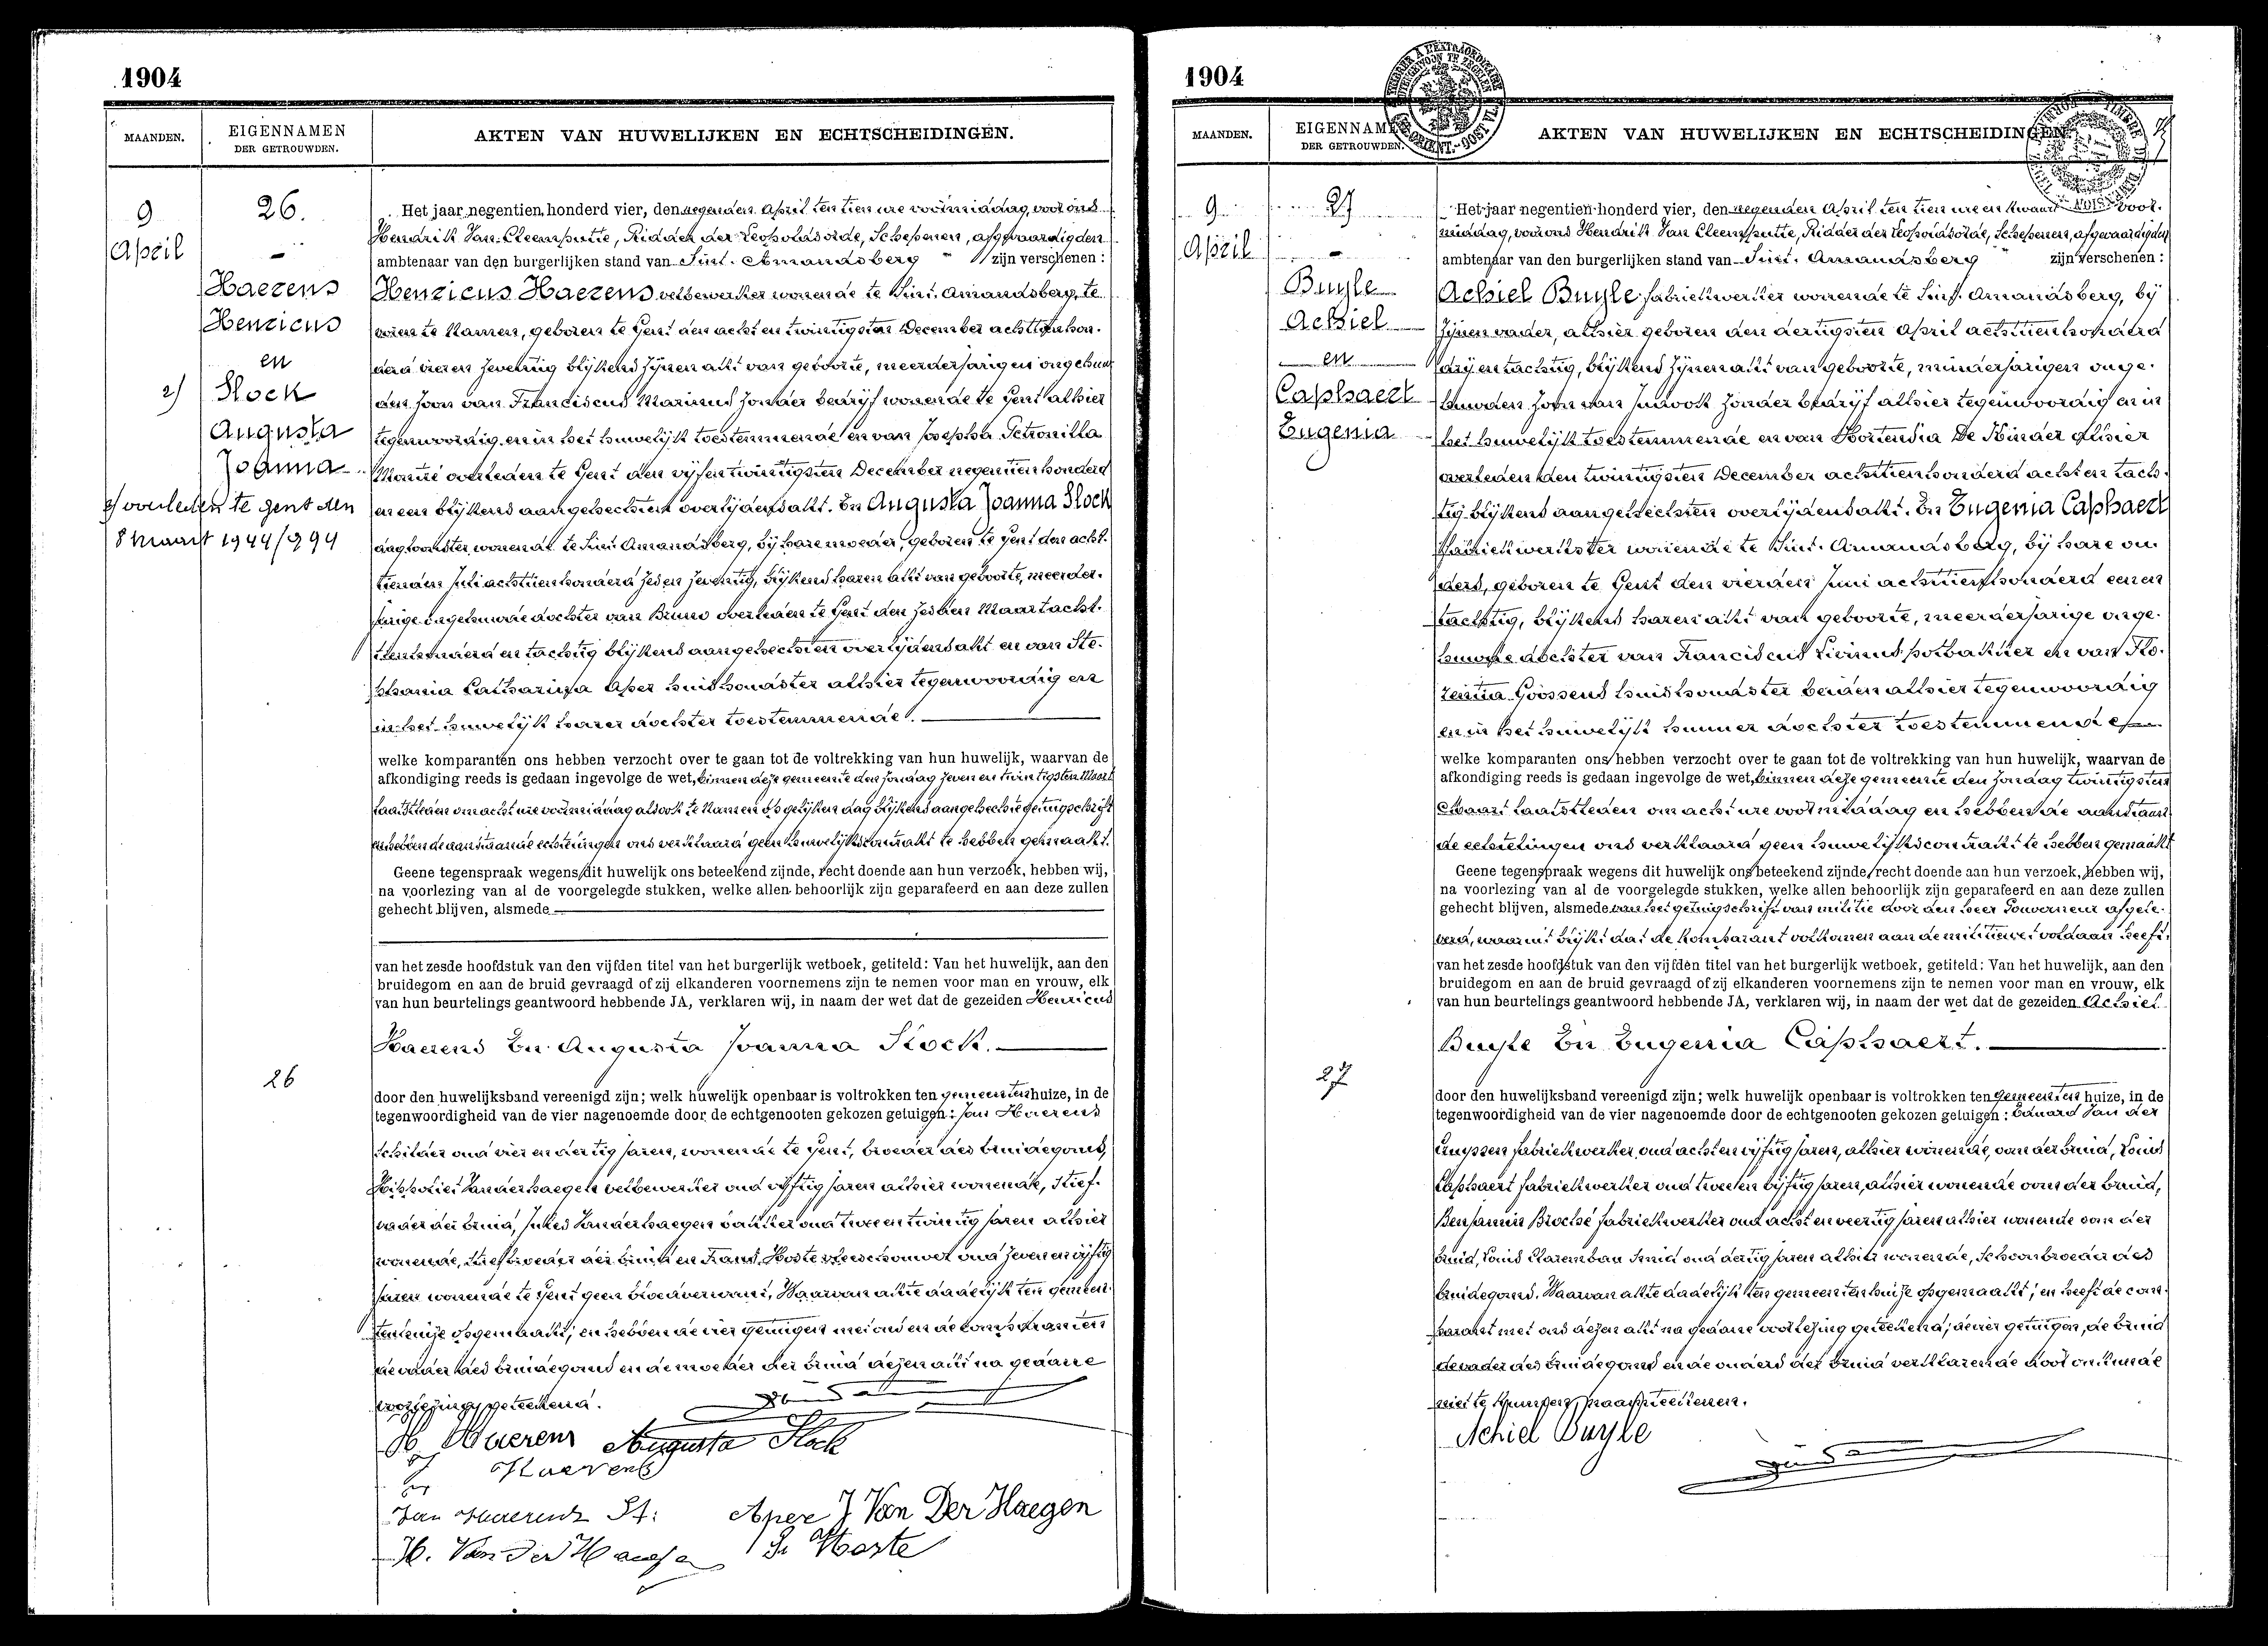 1904
MAANDEN.
EIGENNAMEN
DER GETROUWDEN.
AKTEN VAN HUWELIJKEN EN ECHTSCHEIDINGEN.
9
April
26.
Haerens
Henricus
en
Stock
Augusta
Joanna
2)
2) overleden te Gent den
8 Maart 1944/994
26
Het jaar negentien honderd vier, den negenden April ten tien ure voormiddag, voor ons
Hendrik Van Cleemputte, Ridder der Leopoldsorde, Schepenen, afgevaardigden
ambtenaar van den burgerlijken stand van Sint. Amandsberg zijn verschenen :
Henricus Haerens velbewerker wonende te Sint. Amandsberg, te
voren te Namen, geboren te Gent den acht en twintigsten December achttien hon.
derd vier en zeventig blijkens zijnen akt van geboorte, meerderjarigen ongehuw
den zoon van Franciscus Marinus zonder bedrijf wonende te Gent alhier
tegenwoordig en in het huwelijk toestemmende en van Josepha Petronilla
overleden te Gent den vijfentwintigsten December negentienhonderd
en een blijkens aangehechten overlijdensakt. En Augusta Joanna Stock
dagloonster wonende te Sint Amandsberg, bij hare moeder, geboren te Gent den acht.
tienden Juli achttienhonderd zes en zeventig, blijkens haren akt van geboorte, meerder.
jarige ongehuwde dochter van Bruno overleden te Gent den zesden Maart acht.
tienhonderd en tachtig blijkens aangehechten overlijdensakt en van Ste.
phania Catharina Aper huishoudster alhier tegenwoordig en
in het huwelijk harer dochter toestemmende.
welke komparanten ons hebben verzocht over te gaan tot de voltrekking van hun huwelijk, waarvan de
afkondiging reeds is gedaan ingevolge de wet, binnen deze gemeente den zondag zeven en twintigsten Maart
laatstleden om acht ure voormiddag alsook te Namen op gelijken dag blijkens aangehechte getuigschrift
en hebben de aanstaande echtelingen ons verklaard geen huwelijkscontrakt te hebben gemaakt.
Geene tegenspraak wegens dit huwelijk ons beteekend zijnde, recht doende aan hun verzoek, hebben wij,
na voorlezing van al de voorgelegde stukken, welke allen behoorlijk zijn geparafeerd en aan deze zullen
gehecht blijven, alsmede
van het zesde hoofdstuk van den vijfden titel van het burgerlijk wetboek, getiteld: Van het huwelijk, aan den
bruidegom en aan de bruid gevraagd of zij elkanderen voornemens zijn te nemen voor man en vrouw, elk
van hun beurtelings geantwoord hebbende JA, verklaren wij, in naam der wet dat de gezeiden Henricus
Haerens En Augusta Joanna Stock.
door den huwelijksband vereenigd zijn; welk huwelijk openbaar is voltrokken ten gemeentenhuize, in de
tegenwoordigheid van de vier nagenoemde door de echtgenooten gekozen getuigen: Jan Haerens
schilder oud vier en dertig jaren, wonende te Gent, broeder des bruidegoms,
Hippoliet Vanderhaegen velbewerker oud vijftig jaren alhier wonende, stief.
vader der bruid, Jules Vanderhaegen bakker oud twee en twintig jaren alhier
wonende, stiefbroeder der bruid en Frans Hoste vleeschouwer oud zeven en vijftig
jaren wonende te Gent geen bloedverwant. Waarvan akte dadelijk ten gemeen.
tenhuize opgemaakt; en hebben de vier getuigen met ons en de komparanten
de vader des bruidegoms en de moeder der bruid dezen akt na gedane
voorlezing geteekend.
H. Haerens Augusta Stock
Haerens
Jan Haerens St: Aper J Van Der Haegen
H. Van Der Haegen Hoste
1904
MAANDEN.
EIGENNAMEN
DER GETROUWDEN.
AKTEN VAN HUWELIJKEN EN ECHTSCHEIDINGEN.
9
April
27
Buyle
Achiel
en
Caphaert
Eugenia
27
Het jaar negentien honderd vier, den negenden April ten tien ure en kwaart voor.
middag, voor ons Hendrik Van Cleemputte, Ridder der Leopoldsorde, Schepenen, afgevaardigden
ambtenaar van den burgerlijken stand van Sint. Amandsberg zijn verschenen :
Achiel Buyle fabriekwerker wonende te Sint. Amandsberg, bij
zijnen vader, alhier geboren den dertigsten April achttienhonderd
drij en tachtig, blijkens zijnen akt van geboorte, minderjarigen onge.
huwden zoon van Judook zonder bedrijf alhier tegenwoordig en in
het huwelijk toestemmende en van Hortensia De Kinder alhier
overleden den twintigsten December achttienhonderd acht en tach.
tig blijkens aangehechten overlijdensakt. En Eugenia Caphaert
fabriekwerkster wonende te Sint. Amandsberg, bij hare ou
ders, geboren te Gent den vierden Juni achttienhonderd een en
tachtig, blijkens haren akt van geboorte, meerderjarige onge.
huwde dochter van Franciscus Livinus potbakker en van Flo.
rentia Goossens huishoudster beiden alhier tegenwoordig
en in het huwelijk hunner dochter toestemmende
welke komparanten ons hebben verzocht over te gaan tot de voltrekking van hun huwelijk, waarvan de
afkondiging reeds is gedaan ingevolge de wet, binnen deze gemeente den zondag twintigsten
Maart laatstleden om acht ure voormiddag en hebben de aanstaan
de echtelingen ons verklaard geen huwelijkscontrakt te hebben gemaakt
Geene tegenspraak wegens dit huwelijk ons beteekend zijnde, recht doende aan hun verzoek, hebben wij,
na voorlezing van al de voorgelegde stukken, welke allen behoorlijk zijn geparafeerd en aan deze zullen
gehecht blijven, alsmede van het getuigschrift van militie door den heer Gouverneur afgele.
verd, waaruit blijkt dat de komparant volkomen aan de militiewet voldaan heeft,
van het zesde hoofdstuk van den vijfden titel van het burgerlijk wetboek, getiteld: Van het huwelijk, aan den
bruidegom en aan de bruid gevraagd of zij elkanderen voornemens zijn te nemen voor man en vrouw, elk
van hun beurtelings geantwoord hebbende JA, verklaren wij, in naam der wet dat de gezeiden Achiel
Buyle En Eugenia Caphaert.
door den huwelijksband vereenigd zijn; welk huwelijk openbaar is voltrokken ten gemeentenhuize, in de
tegenwoordigheid van de vier nagenoemde door de echtgenooten gekozen getuigen : Eduard Van der
Cruyssen fabriekwerker oud acht en vijftig jaren, alhier wonende, oom der bruid, Louis
Caphaert fabriekwerker oud twee en vijftig jaren, alhier wonende oom der bruid,
Benjamin Broché fabriekwerker oud acht en veertig jaren alhier wonende oom der
bruid, Louis Clarembau smid oud dertig jaren alhier wonende, schoonbroeder des
bruidegoms. Waarvan akte dadelijk ten gemeentenhuize opgemaakt; en heeft de com.
parant met ons dezen akt na gedane voorlezing geteekend; de vier getuigen, de bruid
de vader des bruidegoms en de ouders der bruid verklarende door onkunde
niet te kunnen naamteekenen.
Achiel Buyle